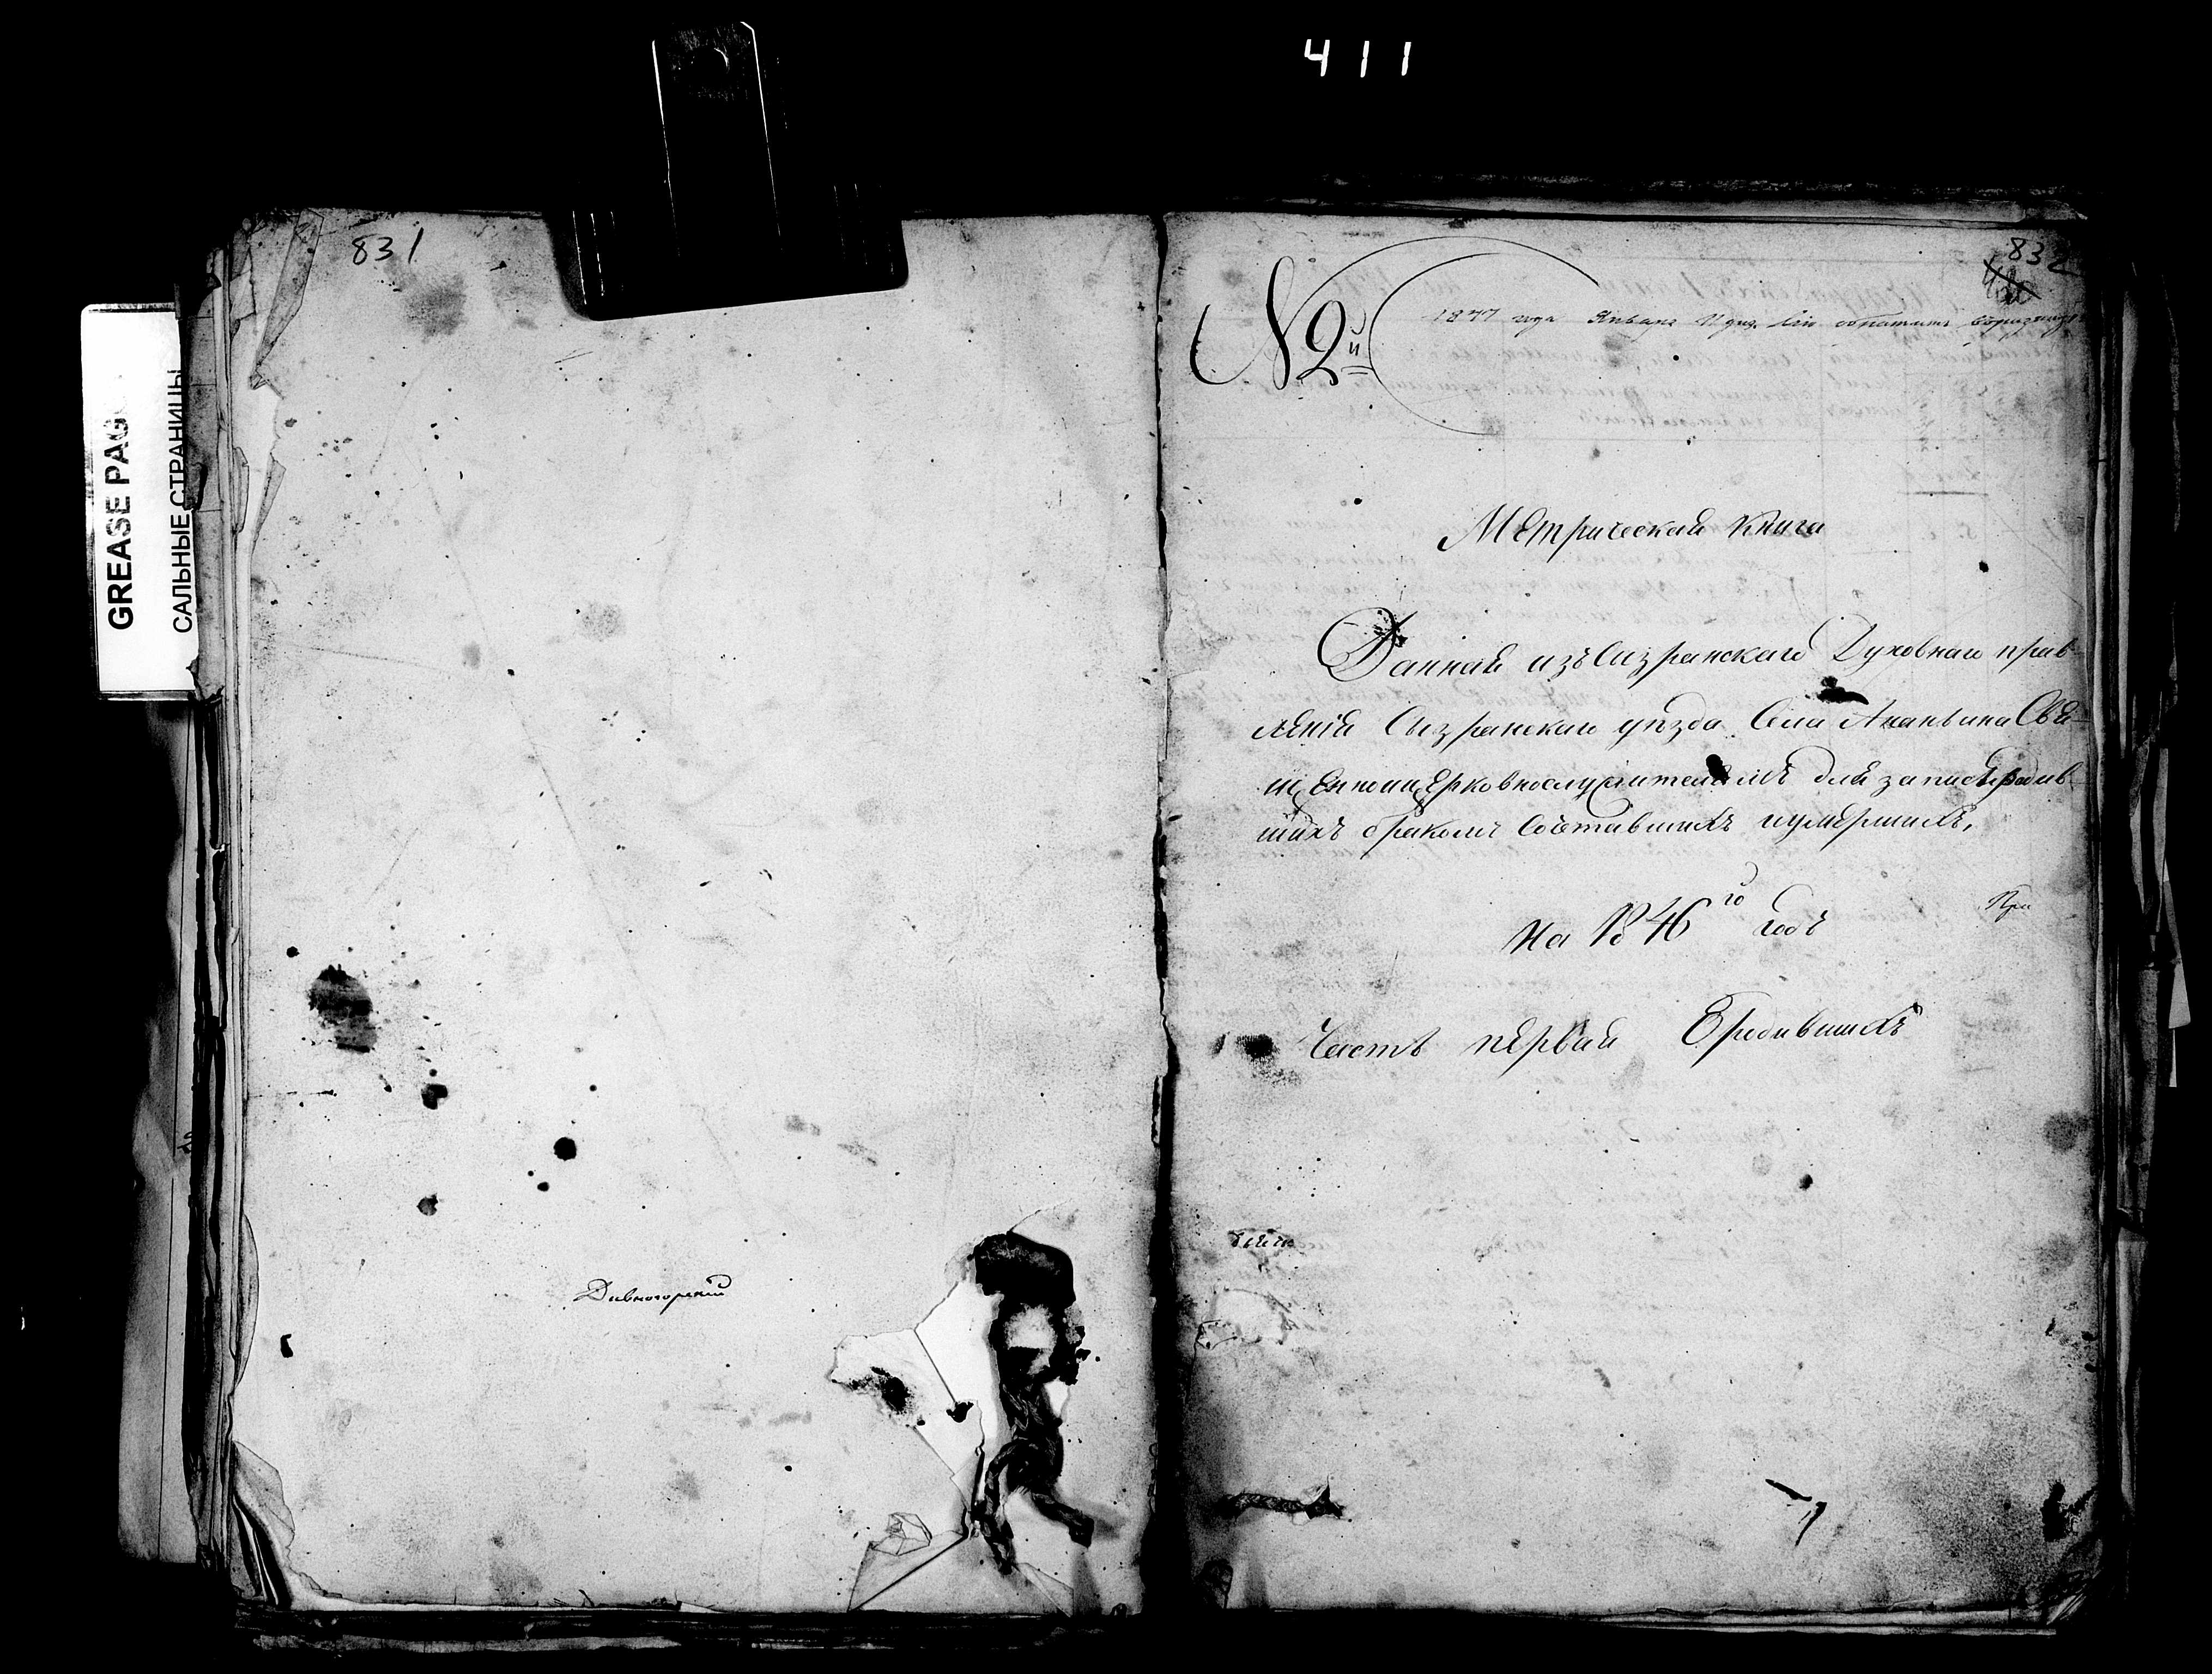 411
831
GREASE PAG
САЛЬНЫЕ СТРАНИЦЫ
Дивногорскій
832
№ 2й
1847 года Января 11 дня
Метрическая книга
Данная изъ Сызранскаго Духовнаго прав-
ленія Сызранскаго уѣзда Села Ананьина Свя-
щенноицерковнослужителямъ для записи родив-
шихъ бракомъ сочетавшихъ иумершихъ,
На 1846го годъ
При
Часть первая Ородившихъ